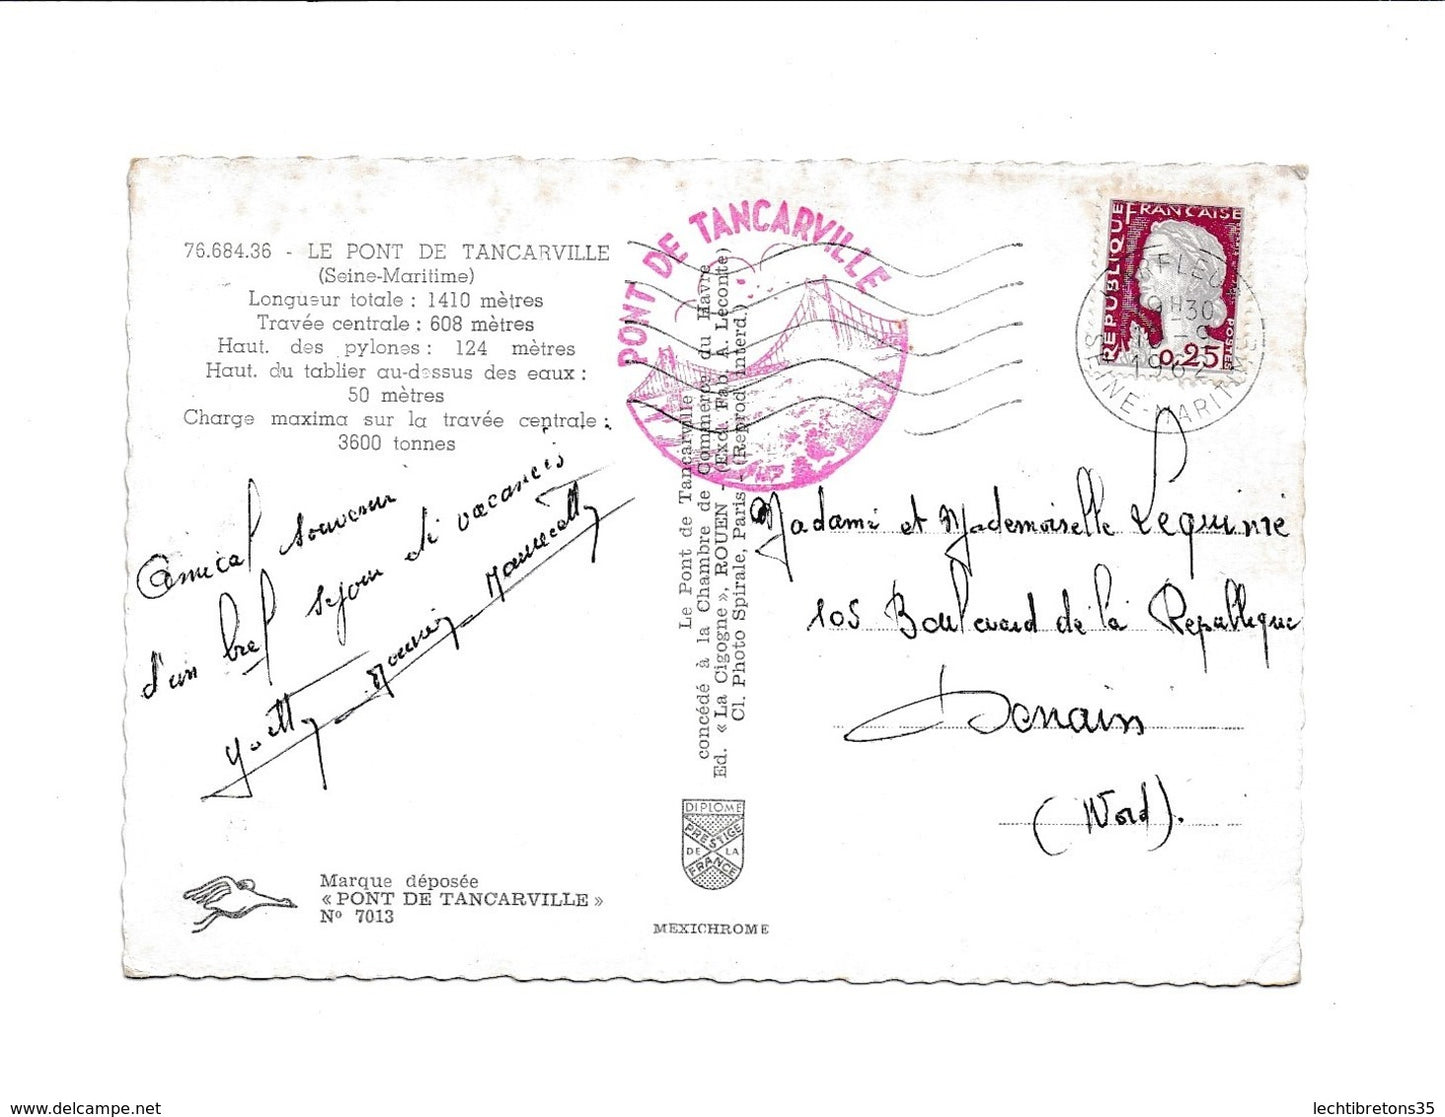 76.684.36 - LE PONT DE TANCARVILLE
(Seine-Maritime)
Longueur totale : 1410 mètres
Travée centrale : 608 mètres
Haut. des pylones : 124 mètres
Haut. du tablier au-dessus des eaux :
50 mètres
Charge maxima sur la travée centrale :
3600 tonnes
Amical souvenir
d'un bref séjour de vacances
Yvette
Marque déposée
« PONT DE TANCARVILLE »
Nº 7013
PONT DE TANCARVILLE
Le Pont de Tancarville
concédé à la Chambre de Commerce du Havre
Ed. « La Cigogne », ROUEN - (Excl. Fab. A. Leconte)
Cl. Photo Spirale, Paris - (Reprod. interd.)
DIPLOME
PRESTIGE
DE LA
FRANCE
MEXICHROME
REPUBLIQUE FRANÇAISE
POSTES
0,25
19H30
SEINE-MARITIME
Madame et Mademoiselle Lequime
105 Boulevard de la République
Denain
(Nord).
lechtibretons35